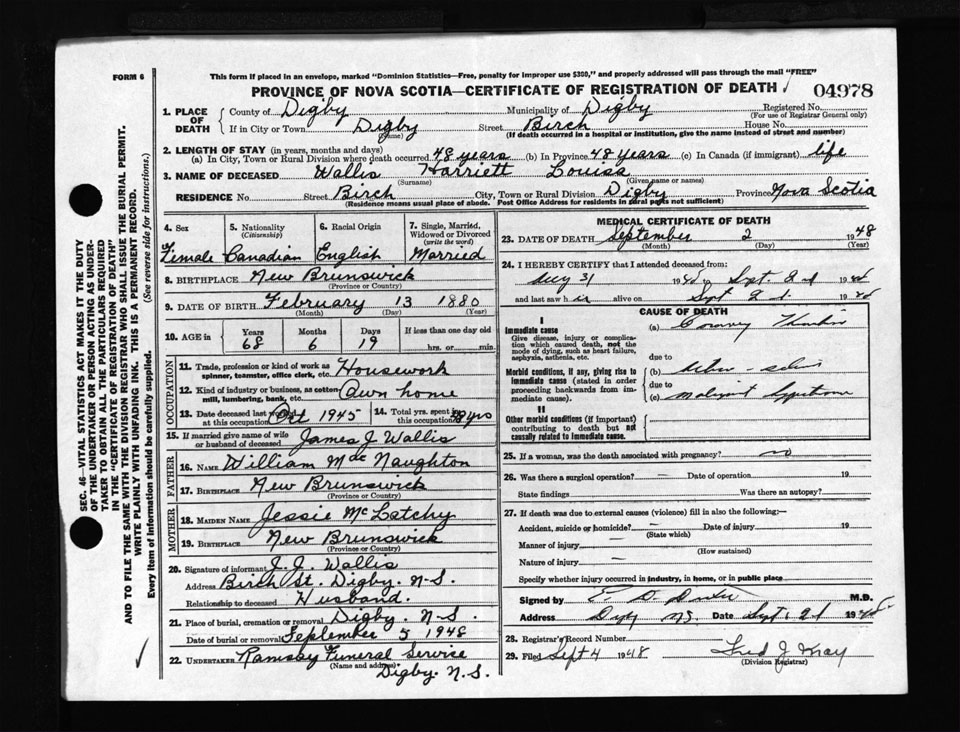 FORM 6
This form if placed in an envelope, marked "Dominion Statistics—Free, penalty for improper use $300," and properly addressed will pass through the mail "FREE"
PROVINCE OF NOVA SCOTIA—CERTIFICATE OF REGISTRATION OF DEATH
04978
1. PLACE OF DEATH
County of Digby Municipality of Digby Registered No.
(For use of Registrar General only)
If in City or Town Digby Street Birch House No.
(Name) (If death occurred in a hospital or institution, give the name instead of street and number)
2. LENGTH OF STAY (in years, months and days)
(a) In City, Town or Rural Division where death occurred 48 years (b) In Province 48 years (c) In Canada (if immigrant) life
3. NAME OF DECEASED Wallis Harriett Louisa
(Surname) (Given name or names)
RESIDENCE No. Street Birch City, Town or Rural Division Digby Province Nova Scotia
(Residence means usual place of abode. Post Office Address for residents in rural parts not sufficient)
4. Sex Female
5. Nationality (Citizenship) Canadian
6. Racial Origin English
7. Single, Married, Widowed or Divorced (write the word) Married
8. BIRTHPLACE New Brunswick
(Province or Country)
9. DATE OF BIRTH February 13 1880
(Month) (Day) (Year)
10. AGE in Years 68 Months 6 Days 19 If less than one day old hrs. or min.
OCCUPATION
11. Trade, profession or kind of work as spinner, teamster, office clerk, etc. Housework
12. Kind of industry or business, as cotton mill, lumbering, bank, etc. Own home
13. Date deceased last worked at this occupation Oct 1945
14. Total yrs. spent in this occupation yrs
15. If married give name of wife or husband of deceased James J Wallis
FATHER
16. NAME William Mac Naughton
17. BIRTHPLACE New Brunswick
(Province or Country)
MOTHER
18. MAIDEN NAME Jessie Mc Latchy
19. BIRTHPLACE New Brunswick
(Province or Country)
20. Signature of informant J. J. Wallis
Address Birch St. Digby. N.S.
Relationship to deceased Husband.
21. Place of burial, cremation or removal Digby. N.S.
Date of burial or removal September 5 1948
22. UNDERTAKER Ramsay Funeral Service
(Name and address)
Digby. N.S.
MEDICAL CERTIFICATE OF DEATH
23. DATE OF DEATH September 2 1948
(Month) (Day) (Year)
24. I HEREBY CERTIFY that I attended deceased from:
Aug 31 1948 Sept. 2d 1948
and last saw her alive on Sept 2d. 1948
CAUSE OF DEATH
I
Immediate cause
Give disease, injury or complication which caused death, not the mode of dying, such as heart failure, asphyxia, asthenia, etc.
(a) Coronary
due to
Morbid conditions, if any, giving rise to immediate cause (stated in order proceeding backwards from immediate cause).
(b)
due to
(c) malignant
II
Other morbid conditions (if important) contributing to death but not causally related to immediate cause.
25. If a woman, was the death associated with pregnancy? no
26. Was there a surgical operation? — Date of operation 19
State findings Was there an autopsy?
27. If death was due to external causes (violence) fill in also the following:—
Accident, suicide or homicide? — Date of injury 19
(State which)
Manner of injury —
(How sustained)
Nature of injury —
Specify whether injury occurred in industry, in home, or in public place
Signed by E. D. M.D.
Address Digby N.S. Date Sept. 2d 1948
28. Registrar's Record Number
29. Filed Sept 4 1948 Fred J
(Division Registrar)
SEC. 46—VITAL STATISTICS ACT MAKES IT THE DUTY OF THE UNDERTAKER OR PERSON ACTING AS UNDERTAKER TO OBTAIN ALL THE PARTICULARS REQUIRED IN THE "CERTIFICATE OF REGISTRATION OF DEATH"
AND TO FILE THE SAME WITH THE DIVISION REGISTRAR WHO SHALL ISSUE THE BURIAL PERMIT.
WRITE PLAINLY WITH UNFADING INK. THIS IS A PERMANENT RECORD.
Every item of information should be carefully supplied. (See reverse side for instructions.)